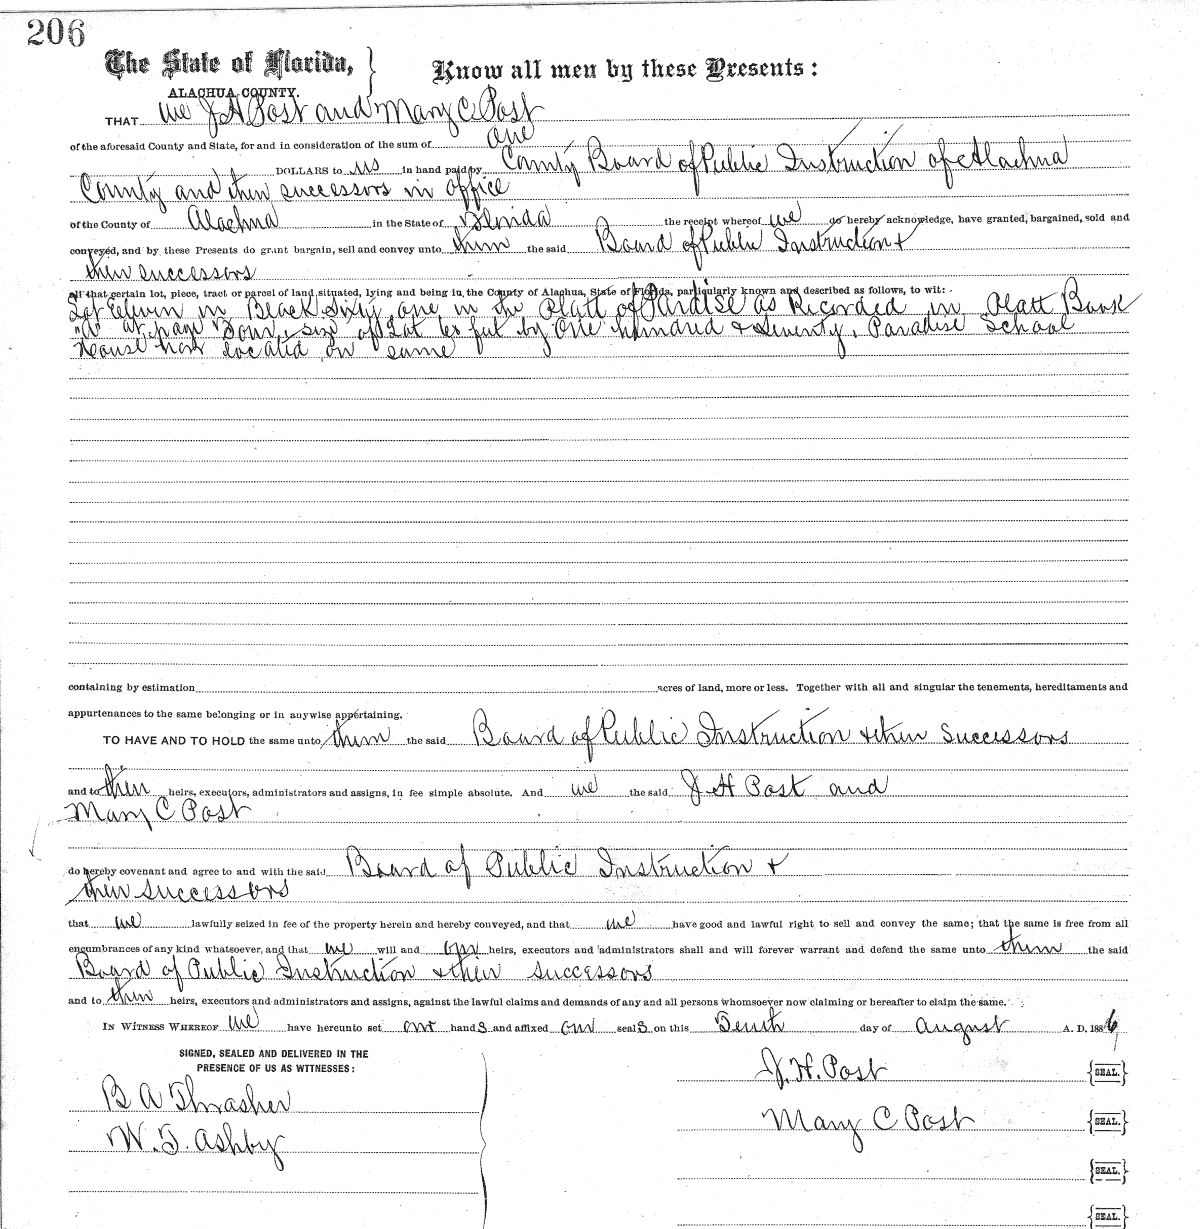 206
The State of Florida, } Know all men by these Presents:
ALACHUA COUNTY.
THAT we J H Post and Mary C Post
of the aforesaid County and State, for and in consideration of the sum of One
DOLLARS to us in hand paid by County Board of Public Instruction of Alachua
County and their successors in office
of the County of Alachua in the State of Florida the receipt whereof we do hereby acknowledge, have granted, bargained, sold and
conveyed, and by these Presents do grant bargain, sell and convey unto them the said Board of Public Instruction &
their successors
all that certain lot, piece, tract or parcel of land situated, lying and being in the County of Alachua, State of Florida, particularly known and described as follows, to wit:
Lot Eleven in Block Sixty one in the Platt of Paradise as Recorded in Platt Book
"A" at page Four, size of Lot 60 feet by One hundred & Seventy, Paradise School
House now located on same
containing by estimation acres of land, more or less. Together with all and singular the tenements, hereditaments and
appurtenances to the same belonging or in anywise appertaining.
TO HAVE AND TO HOLD the same unto them the said Board of Public Instruction & their Successors
and to their heirs, executors, administrators and assigns, in fee simple absolute. And we the said J H Post and
Mary C Post
do hereby covenant and agree to and with the said Board of Public Instruction &
their successors
that we lawfully seized in fee of the property herein and hereby conveyed, and that we have good and lawful right to sell and convey the same; that the same is free from all
encumbrances of any kind whatsoever, and that we will and our heirs, executors and administrators shall and will forever warrant and defend the same unto them the said
Board of Public Instruction & their successors
and to their heirs, executors and administrators and assigns, against the lawful claims and demands of any and all persons whomsoever now claiming or hereafter to claim the same.
IN WITNESS WHEREOF we have hereunto set our hands and affixed our seals on this Tenth day of August A. D. 1886
SIGNED, SEALED AND DELIVERED IN THE
PRESENCE OF US AS WITNESSES:
J. H. Post {SEAL.}
B A Thrasher
Mary C Post {SEAL.}
W. T. Ashby
{SEAL.}
{SEAL.}